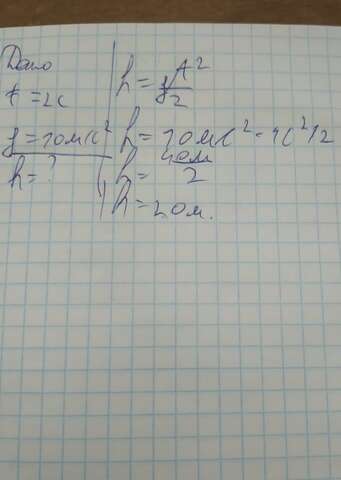 Дано
t = 2с
g = 10 м/с²
h = ?
h = gt²/2
h = 10 м/с² · 4с²/2
h = 40м/2
h = 20м.